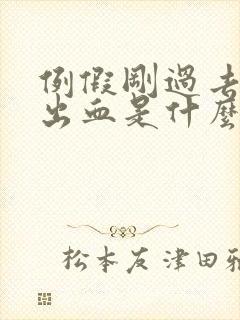 例假剛過去
出血是什麼
松本友津田雅